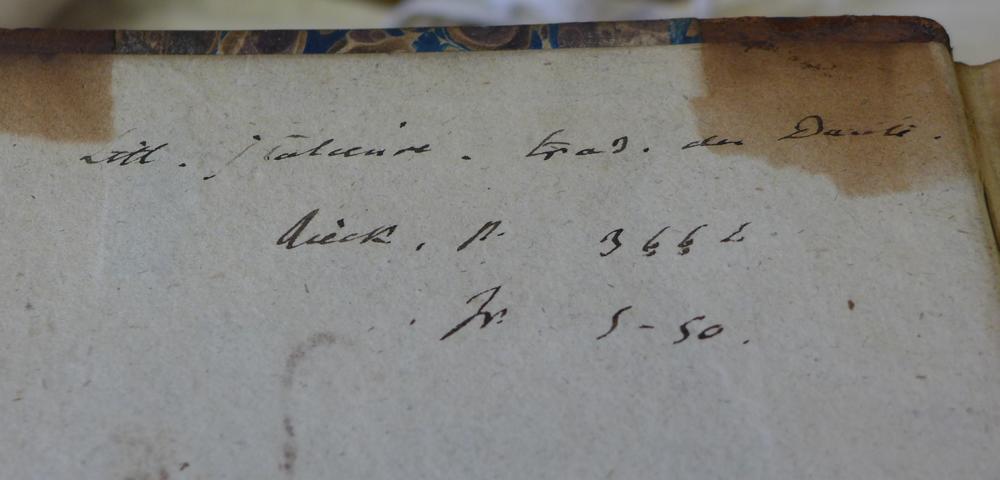 Litt. Italienne. trad. du Dante.
p. 3662
fr. 5-50.